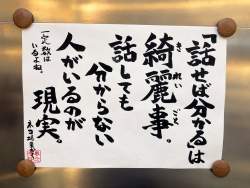 「話せば分かる」は
綺麗事。
きれいごと
話しても
分からない
人がいるのが
現実。
一定数は
いるよね。